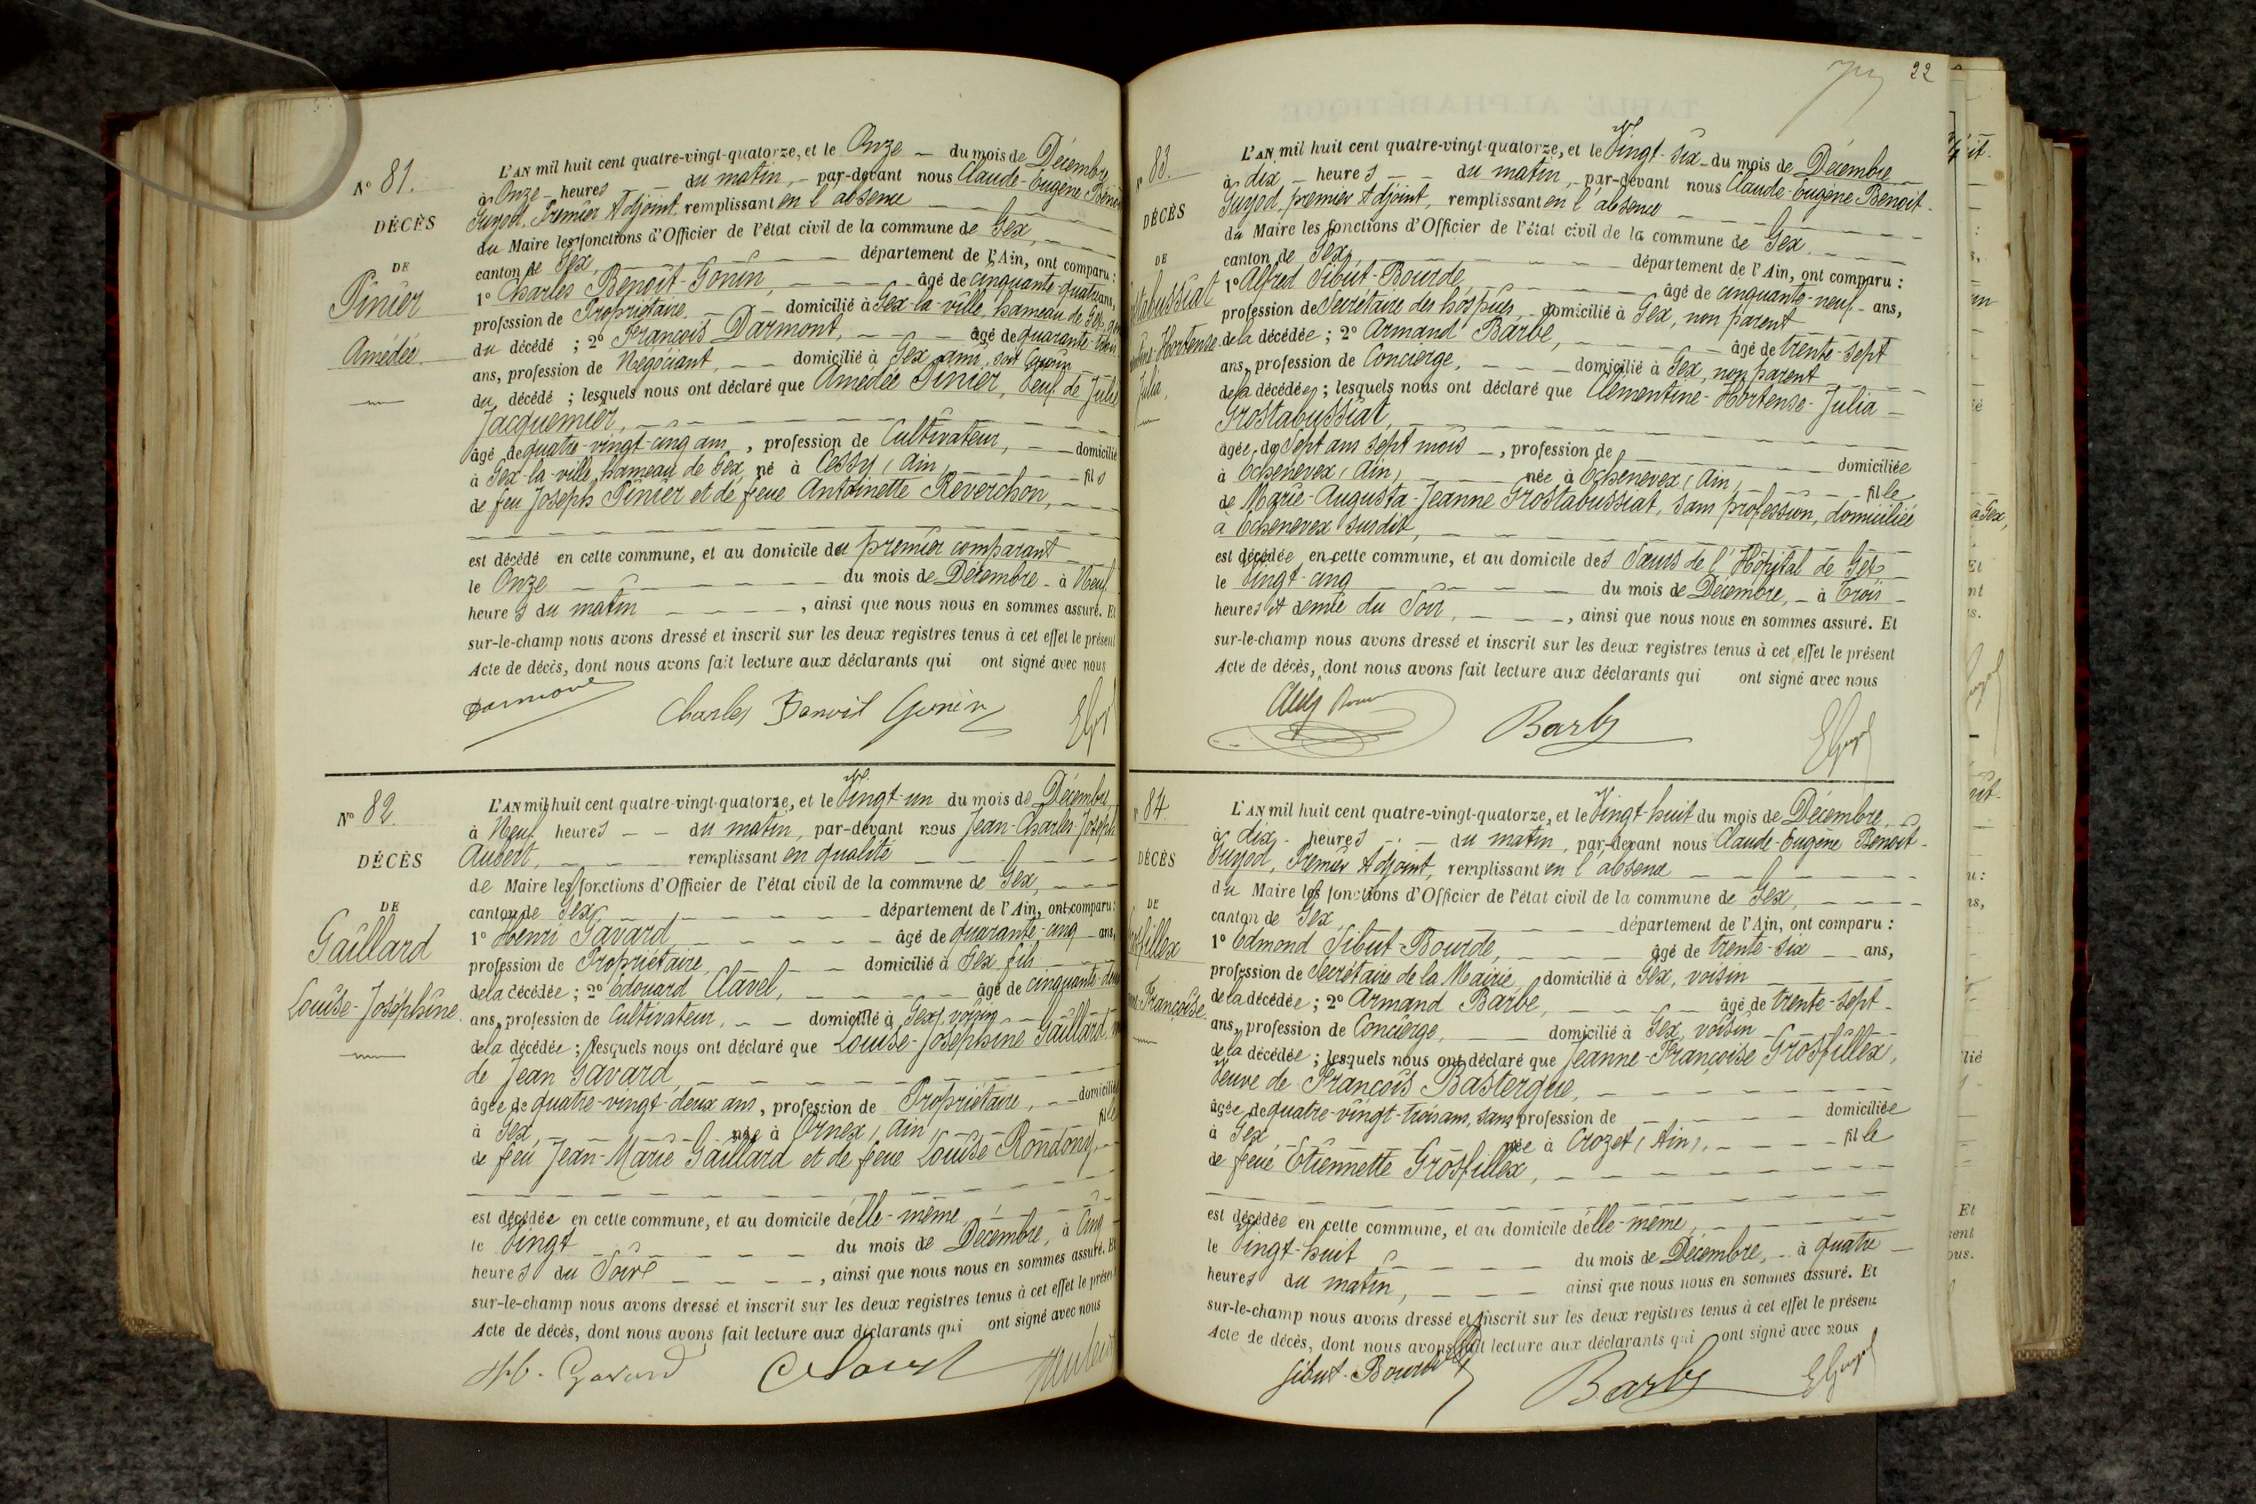 N° 81.
DÉCÈS
DE
Pinier
Amédée
L'AN mil huit cent quatre-vingt-quatorze, et le Onze du mois de Décembre
à Onze heures du matin, par-devant nous Claude-Eugène Benoit
Guyod, Premier Adjoint, remplissant en l'absence
du Maire les fonctions d'Officier de l'état civil de la commune de Gex,
canton de Gex, département de l'Ain, ont comparu :
1° Charles Benoit-Gonin, âgé de cinquante-quatre ans,
profession de Propriétaire, domicilié à Gex-la-ville, hameau de Gex,
du décédé ; 2° François Darmont, âgé de quarante-
ans, profession de Négociant, domicilié à Gex
du décédé ; lesquels nous ont déclaré que Amédée Pinier, veuf de Julie
Jacquemier,
âgé de quatre-vingt-cinq ans, profession de Cultivateur, domicilié
à Gex-la-ville, hameau de Gex, né à Cessy (Ain) fils
de feu Joseph Pinier et de feue Antoinette Reverchon,
est décédé en cette commune, et au domicile du premier comparant
le Onze du mois de Décembre à Neuf
heures du matin, ainsi que nous nous en sommes assuré. Et
sur-le-champ nous avons dressé et inscrit sur les deux registres tenus à cet effet le présent
Acte de décès, dont nous avons fait lecture aux déclarants qui ont signé avec nous
Darmont Charles Benoit Gonin
N° 82.
DÉCÈS
DE
Gaillard
Louise-Joséphine
L'AN mil huit cent quatre-vingt-quatorze, et le Vingt-un du mois de Décembre,
à Neuf heures du matin, par-devant nous Jean-Charles-Joseph
Aubert, remplissant en qualité
de Maire les fonctions d'Officier de l'état civil de la commune de Gex,
canton de Gex, département de l'Ain, ont comparu :
1° Henri Gavard, âgé de quarante-cinq ans,
profession de Propriétaire, domicilié à Gex, fils
de la décédée ; 2° Edouard Clavel, âgé de cinquante-deux
ans, profession de Cultivateur, domicilié à Gex, voisin
de la décédée ; lesquels nous ont déclaré que Louise-Joséphine Gaillard,
de Jean Gavard,
âgée de quatre-vingt-deux ans, profession de Propriétaire, domiciliée
à Gex, née à Ornex (Ain), fille
de feu Jean-Marie Gaillard et de feue Louise Rondony,
est décédée en cette commune, et au domicile d'elle-même,
le Vingt du mois de Décembre, à Cinq
heures du Soir, ainsi que nous nous en sommes assuré. Et
sur-le-champ nous avons dressé et inscrit sur les deux registres tenus à cet effet le présent
Acte de décès, dont nous avons fait lecture aux déclarants qui ont signé avec nous
H. Gavard Clavel
22
83.
DÉCÈS
DE
Hortense
Julia,
L'AN mil huit cent quatre-vingt-quatorze, et le Vingt-six du mois de Décembre
à dix heures du matin, par-devant nous Claude-Eugène Benoit
Guyod, premier Adjoint, remplissant en l'absence
du Maire les fonctions d'Officier de l'état civil de la commune de Gex
canton de Gex, département de l'Ain, ont comparu :
1° Alfred Sibut-Bourde, âgé de cinquante-neuf ans,
profession de Secrétaire des hospices, domicilié à Gex, non parent
de la décédée ; 2° Armand Barbe, âgé de trente-sept
ans, profession de Concierge, domicilié à Gex, non parent
de la décédée ; lesquels nous ont déclaré que Clémentine-Hortense-Julia
Grostabussiat,
âgée de Sept ans sept mois, profession de domiciliée
à Echenevex (Ain), née à Echenevex (Ain), fille
de Marie-Augusta-Jeanne Grostabussiat, sans profession, domiciliée
à Echenevex susdit,
est décédée en cette commune, et au domicile des Sœurs de l'Hôpital de Gex
le Vingt-cinq du mois de Décembre, à Trois
heures et demie du Soir, ainsi que nous nous en sommes assuré. Et
sur-le-champ nous avons dressé et inscrit sur les deux registres tenus à cet effet le présent
Acte de décès, dont nous avons fait lecture aux déclarants qui ont signé avec nous
Barbe EGuyod
84.
DÉCÈS
DE
Françoise.
L'AN mil huit cent quatre-vingt-quatorze, et le Vingt-huit du mois de Décembre,
à dix heures du matin, par-devant nous Claude-Eugène Benoit
Guyod, Premier Adjoint, remplissant en l'absence
du Maire les fonctions d'Officier de l'état civil de la commune de Gex,
canton de Gex, département de l'Ain, ont comparu :
1° Edmond Sibut-Bourde, âgé de trente-six ans,
profession de Secrétaire de la Mairie, domicilié à Gex, voisin
de la décédée ; 2° Armand Barbe, âgé de trente-sept
ans, profession de Concierge, domicilié à Gex, voisin
de la décédée ; lesquels nous ont déclaré que Jeanne-Françoise Grosfillex,
Veuve de François Bastergue,
âgée de quatre-vingt-trois ans, sans profession de domiciliée
à Gex, née à Crozet (Ain), fille
de feue Etiennette Grosfillex,
est décédée en cette commune, et au domicile d'elle-même,
le Vingt-huit du mois de Décembre, à quatre
heures du matin, ainsi que nous nous en sommes assuré. Et
sur-le-champ nous avons dressé et inscrit sur les deux registres tenus à cet effet le présent
Acte de décès, dont nous avons fait lecture aux déclarants qui ont signé avec nous
Sibut-Bourde Barbe EGuyod